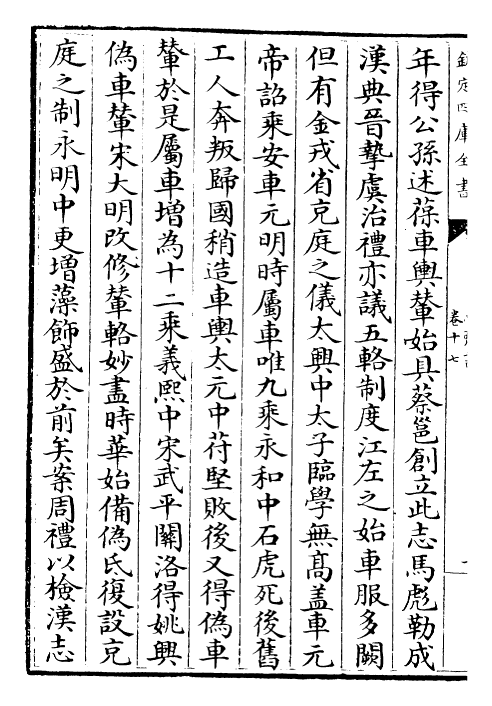 欽定四庫全書
卷十七
年得公孫述葆車輿輦始具蔡邕創立此志馬彪勒成
漢典晉摯虞治禮亦議五輅制度江左之始車服多闕
但有金戎省充庭之儀太興中太子臨學無高盖車元
帝詔乘安車元明時屬車唯九乘永和中石虎死後舊
工人奔叛歸國稍造車輿大元中苻堅敗後又得偽車
輦於是屬車增為十二乘義熙中宋武平關洛得姚興
偽車輦宋大明改修輦輅妙盡時華始備偽氐復設充
庭之制永明中更增藻飾盛於前矣案周禮以檢漢志